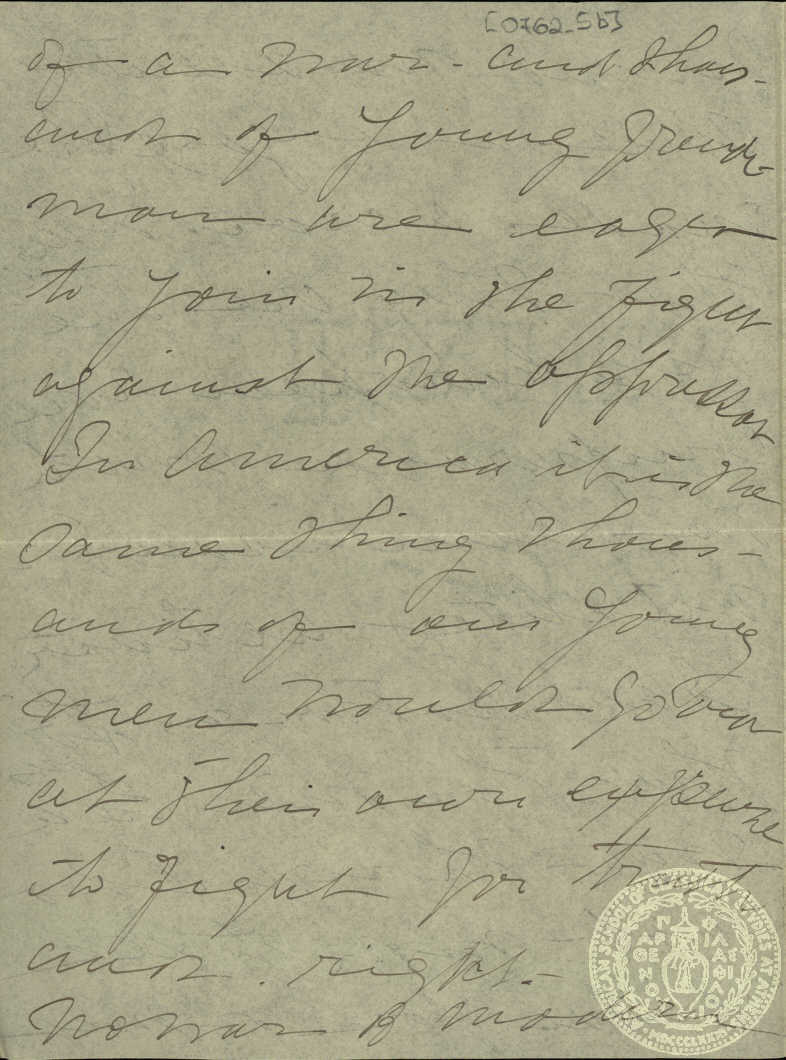 [0762_5b]
of a war - and thous-
ands of young french-
men are eager
to join in the fight
against the oppressor
In America it is the
same thing thous-
ands of our young
men would go over
at their own expense
to fight for truth
and right -
No war modern
ΠΑΡΘΕΝΟΦ ΦΙΛΑΣΦΙΛΟ
AMERICAN SCHOOL OF CLASSICAL STUDIES AT ATHENS